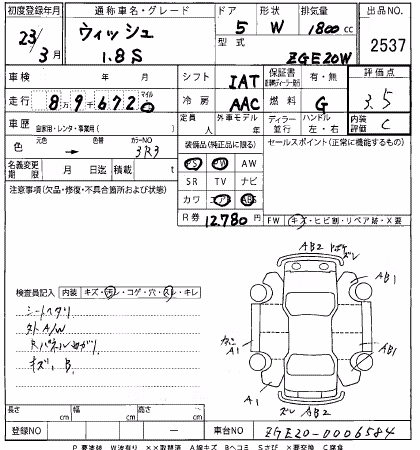 初度登録年月 23/3月
通称車名・グレード ウィッシュ 1.8S
ドア 5 形状 W 排気量 1800cc
型式 ZGE20W
出品NO. 2537
車検 年 月
シフト IAT
保証書 有・無
評価点 3.5
走行 89672.0
冷房 AAC
燃料 G
内装評価 C
車歴 自家用・レンタ・事業用( )
定員 人
外車モデル 年
ディーラー 並行
ハンドル 左・右
色 元色 → 色替 カラーNO 3R3
名義変更期限 月 日迄
積載 t
装備品(純正品に限る)
PS PW AW
SR TV ナビ
カワ ABS
R券 12,780円
セールスポイント(正常に機能するもの)
FW キズ・ヒビ割・リペア跡・X要
注意事項(欠品・修復・不具合箇所および状態)
検査員記入 内装 キズ・汚レ・コゲ・穴・スレ・キレ
シートヘタリ
外A/W
キズ、B
AB2
ズレ
AB1
A1
AB1
A1
ズレ AB2
長さ cm 幅 cm 高さ cm
登録NO ー
車台NO ZGE20-0006584
P要塗装 W波有り XX取替済 A線キズ Bヘコミ Sさび X要交換 C腐食